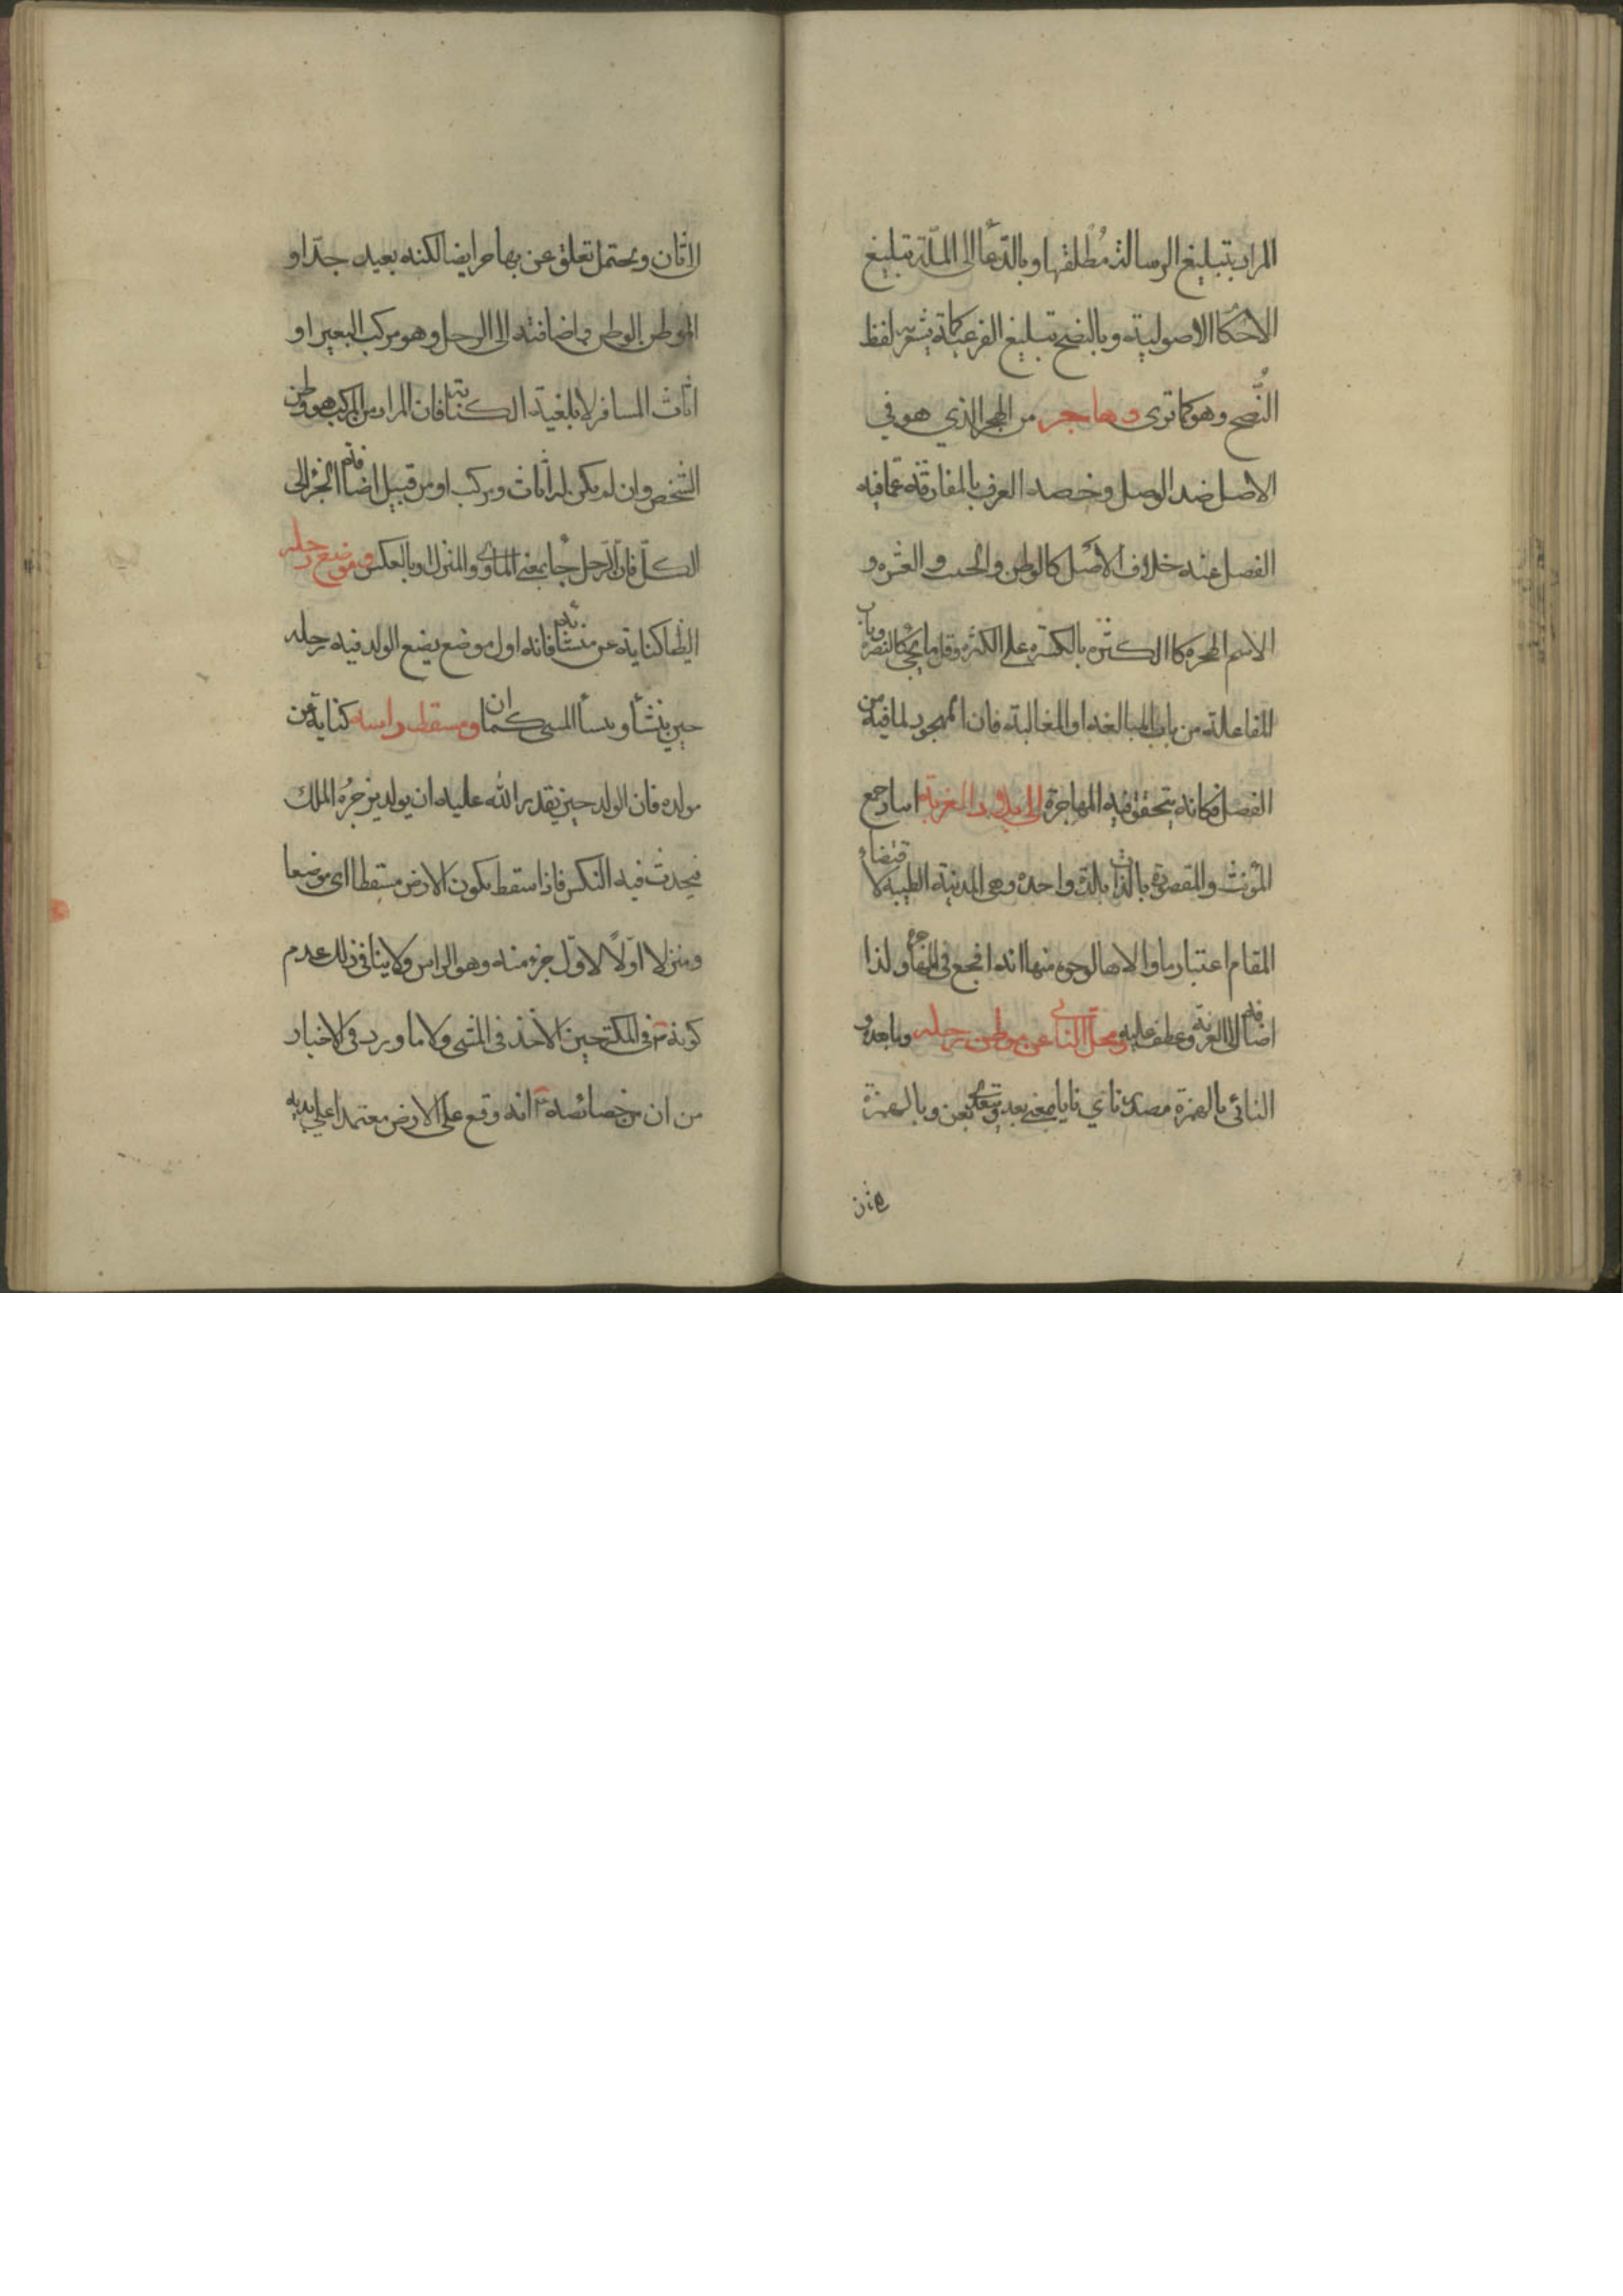 المراد بتبليغ الرسالة مطلقها وبالدعا الى الملة تبليغ
الاحكا الاصولية وبالنصح تبليغ الفرعية كما يشعر به لفظ
النُّصح وهو كما ترى وهاجر من الهجر الذي هو في
الاصل ضد الوصل وخصه العرف بالمفارقة عما فيه
الفصل عنه خلاف الاصل كالوطن والحبيب والعشرة و
الاسم الهجرة كاالكثرة بالكسرة على الكثرة وقل ما يجئ كالنصرة وباب
المفاعلة من باب المبالغه او المغالبة فان المهجور لما فيه من
الفصل فكانه يتحقق فيه المهاجرة الى بلاد الغربة
المؤنث والمقصودة بالذات بلدة واحدة وهي المدينة الطيبة لاقتضاء
المقام اعتبار ماوالاها لوجوه منها انه افجع في المهاجرة ولذا
اضافه الى الغربة وعطف عليه ومحل النائي عن موطن رحله وما بعده و
النائى بالهمزة مصدر ناي نايا بمعنى بعد ويتعدى بعن وبالهمزة
الاثان ويحتمل تعلق عن بهاجر ايضا لكنه بعيد جدّا و
الموطن الوطن واضافته الى الرحل وهو مركب البعير او
اثاث المسافر لابلغية الكناية فان المراد من المركب هو وطن
الشخص وان لم يكن له اثاث ومركب او من قبيل اضافة الجزء الى
الكلّ فان الرحل جا بمعنى الماوى والمنزل او بالعكس وموضع رحله
ايضا كناية عن منشائه فانه اول موضع يضع الولد فيه رجله
حين ينشأ ويبدأ المشي كما ان ومسقط راسه كناية عن
مولده فان الولد حين يقدر الله عليه ان يولد يزجره الملك
فيحدث فيه النكس فاذا سقط يكون الارض مسقطا اى موضعا
ومنزلا اولًا لاوّل جزء منه وهو الراس ولا ينافى ذلك عدم
كونه فى المكة حين الاخذ فى المشى ولا ما ورد فى الاخبار
من ان من خصائصه انه وقع على الارض معتمدا على يديه